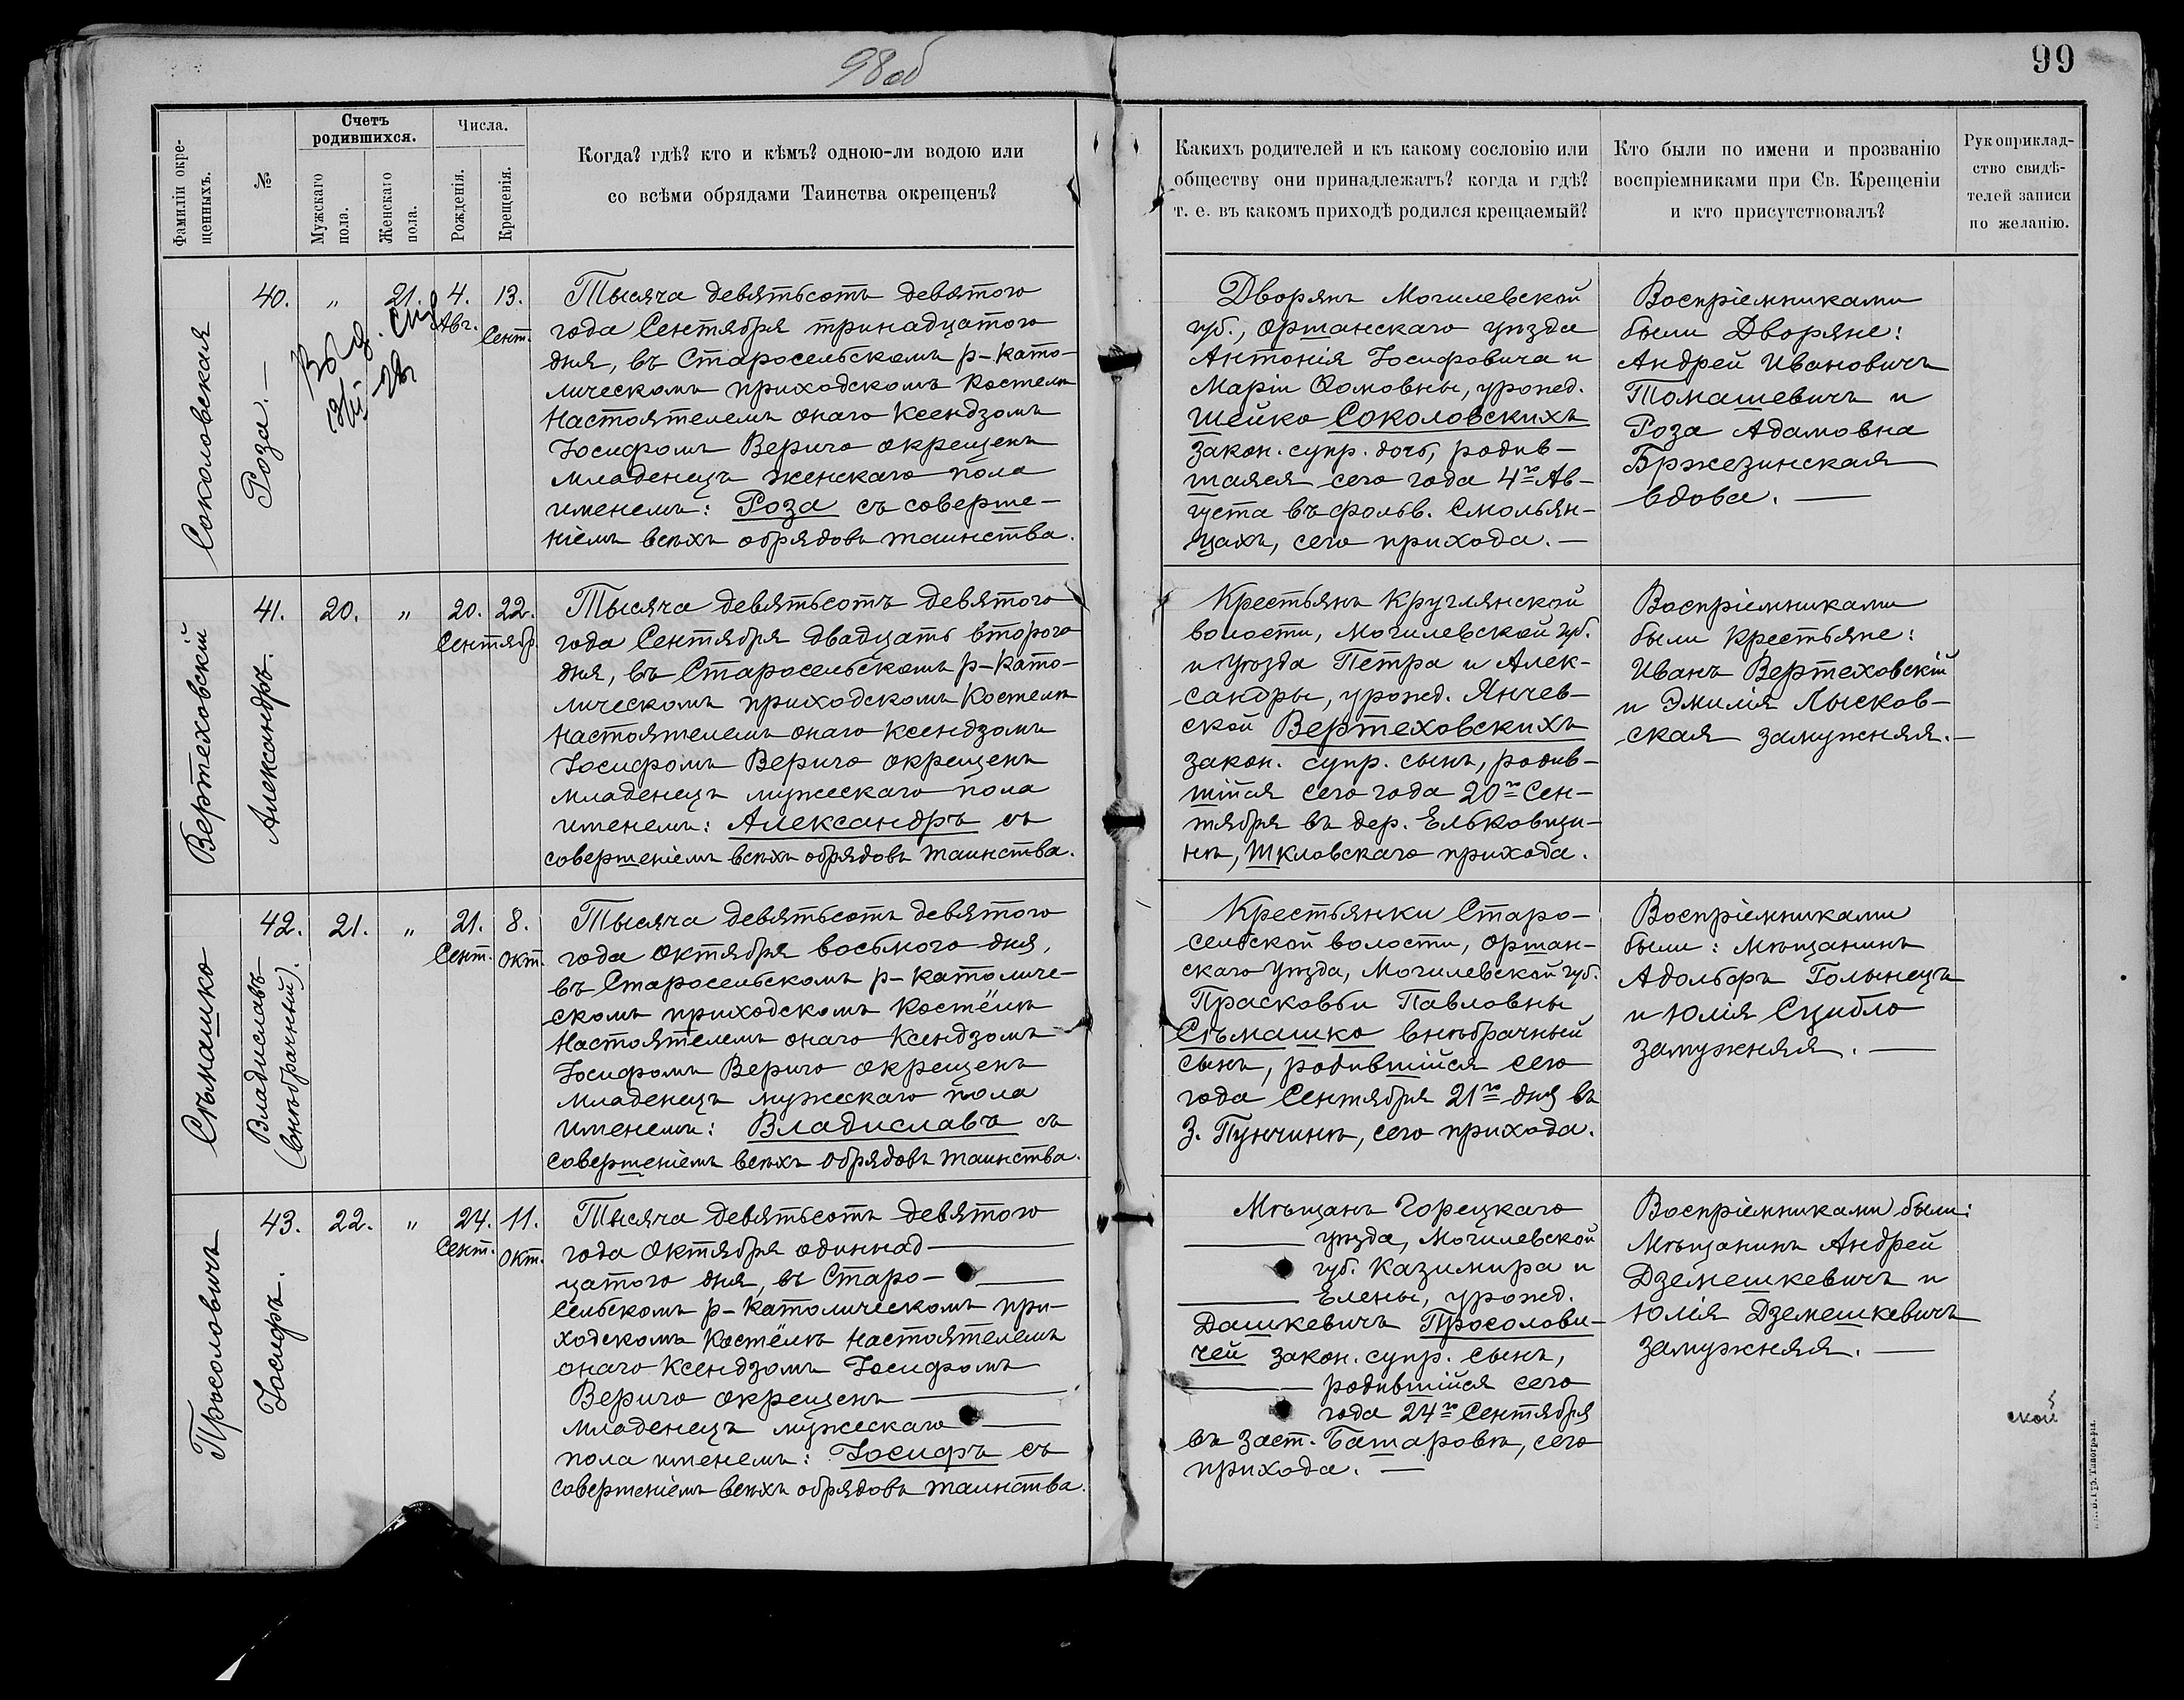 98об
99
Фамиліи окре-
щенныхъ.
№
Счетъ
родившихся.
Мужскаго
пола.
Женскаго
пола.
Числа.
Рожденія.
Крещенія.
Когда? гдѣ? кто и кѣмъ? одною-ли водою или
со всѣми обрядами Таинства окрещенъ?
Какихъ родителей и къ какому сословію или
обществу они принадлежатъ? когда и гдѣ?
т. е. въ какомъ приходѣ родился крещаемый?
Кто были по имени и прозванію
воспріемниками при Св. Крещеніи
и кто присутствовалъ?
Рукоприклад-
ство свидѣ-
телей записи
по желанію.
Соколовская
40.
Роза. —
"
21.
4.
Авг.
13.
Сент.
Тысяча девятьсотъ девятого
года Сентября тринадцатого
дня, въ Старосельскомъ р-като-
лическомъ приходскомъ костелѣ
Настоятелемъ онаго Ксендзомъ
Іосифомъ Верыго окрещенъ
младенецъ женскаго пола
именемъ: Роза съ соверше-
ніемъ всѣхъ обрядовъ таинства.
Дворянъ Могилевской
губ., Оршанскаго уѣзда
Антонія Іосифовича и
Маріи Ѳомовны, урожд.
Шейко Соколовскихъ
закон. супр. дочь, родив-
шаяся сего года 4го Ав-
густа въ фольв. Смольян-
цахъ, сего прихода. —
Воспріемниками
были Дворяне:
Андрей Ивановичъ
Томашевичъ и
Роза Адамовна
Бржезинская
вдова. —
Вертеховскій
41.
Александръ.
20.
"
20.
22.
Сентябр.
Тысяча девятьсотъ девятого
года Сентября двадцать второго
дня, въ Старосельскомъ р-като-
лическомъ приходскомъ Костелѣ
Настоятелемъ онаго Ксендзомъ
Іосифомъ Верыго окрещенъ
младенецъ мужескаго пола
именемъ: Александръ съ
совершеніемъ всѣхъ обрядовъ таинства.
Крестьянъ Круглянской
волости, Могилевской губ.
и уѣзда Петра и Алек-
сандры, урожд. Янчев-
ской Вертеховскихъ
закон. супр. сынъ, родив-
шійся сего года 20го Сен-
тября въ дер. Ельковщи-
нѣ, Шкловскаго прихода.
Воспріемниками
были Крестьяне:
Иванъ Вертеховскій
и Эмилія Лысков-
ская замужняя. —
Сѣмашко
42.
Владиславъ
(внѣбрачный).
21.
"
21.
Сент.
8.
Окт.
Тысяча девятьсотъ девятого
года Октября восьмого дня,
въ Старосельскомъ р-католиче-
скомъ приходскомъ Костёлѣ
Настоятелемъ онаго Ксендзомъ
Іосифомъ Верыго окрещенъ
младенецъ мужескаго пола
именемъ: Владиславъ съ
совершеніемъ всѣхъ обрядовъ таинства.
Крестьянки Старо-
сельской волости, Оршан-
скаго уѣзда, Могилевской губ.
Прасковьи Павловны
Сѣмашко внѣбрачный
сынъ, родившійся сего
года Сентября 21го дня въ
З. Пунчинѣ, сего прихода.
Воспріемниками
были: Мѣщанинъ
Адольфъ Голынецъ
и Юлія Сцибло
замужняя. —
Просоловичъ
43.
Іосифъ.
22.
"
24.
Сент.
11.
Окт.
Тысяча девятьсотъ девятого
года Октября одиннад—
цатого дня, въ Старо—
сельскомъ р-католическомъ при-
ходскомъ Костёлѣ Настоятелемъ
онаго Ксендзомъ Іосифомъ
Верыго окрещенъ —
младенецъ мужескаго —
пола именемъ: Іосифъ съ
совершеніемъ всѣхъ обрядовъ таинства.
Мѣщанъ Горецкаго
— уѣзда, Могилевской
губ. Казимира и
— Елены, урожд.
Дашкевичъ Просолови-
чей закон. супр. сынъ,
— родившійся сего
года 24го Сентября
въ заст. Башаровѣ, сего
прихода. —
Воспріемниками были:
Мѣщанинъ Андрей
Дземешкевичъ и
Юлія Дземешкевичъ
замужняя. —
ской